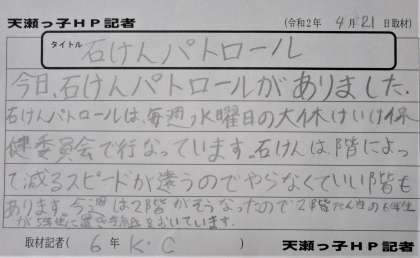 天瀬っ子HP記者 (令和2年 4月21日取材)
タイトル 石けんパトロール
今日、石けんパトロールがありました.
石けんパトロールは、毎週水曜日の大休けいに保
健委員会で行なっています。石けんは、階によっ
て減るスピードが違うのでやらなくていい階も
あります。今週は2階がそうなったので2階たん当の6年生
をおいています.
取材記者( 6年 K・C )
天瀬っ子HP記者